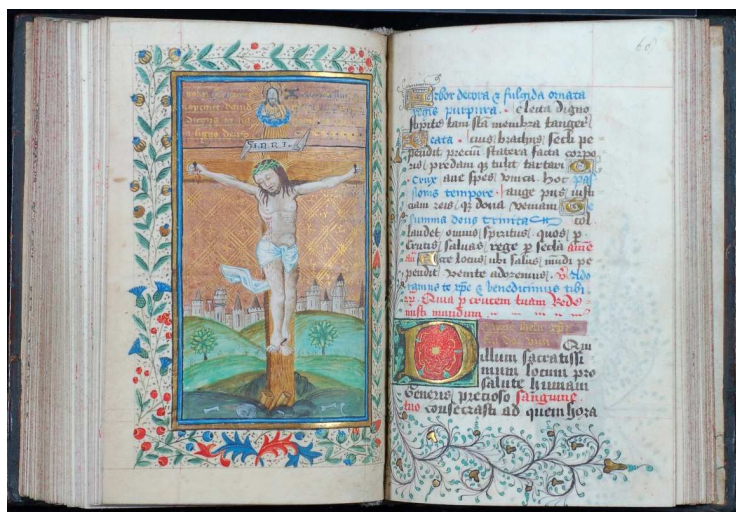 david
a ligno deus
I.N.R.I.
60
Arbor decora & fulgida ornata
regis purpura. electa digno
stipite tam sta membra tanger
Beata cuius brachiis secli pe
pendit preciu statera facta corpo
ris predam q tulit tartari O
Crux aue spes vnica hoc pas
sionis tempore auge piis iusti
ciam reis q dona veniam Te
summa deus trinitas col
laudet omnis spiritus quos p
crucis saluas rege p secla ame
an Ecce locus vbi salus mudi pe
pendit venite adoremus. V Ado
ramus te xpe & benedicimus tibi
rp. Quia p crucem tuam Rede
misti mundum
Qui
illum sacratissi
mum locum pro
salute humani
Generis precioso sanguine
tuo consecrasti ad quem hora